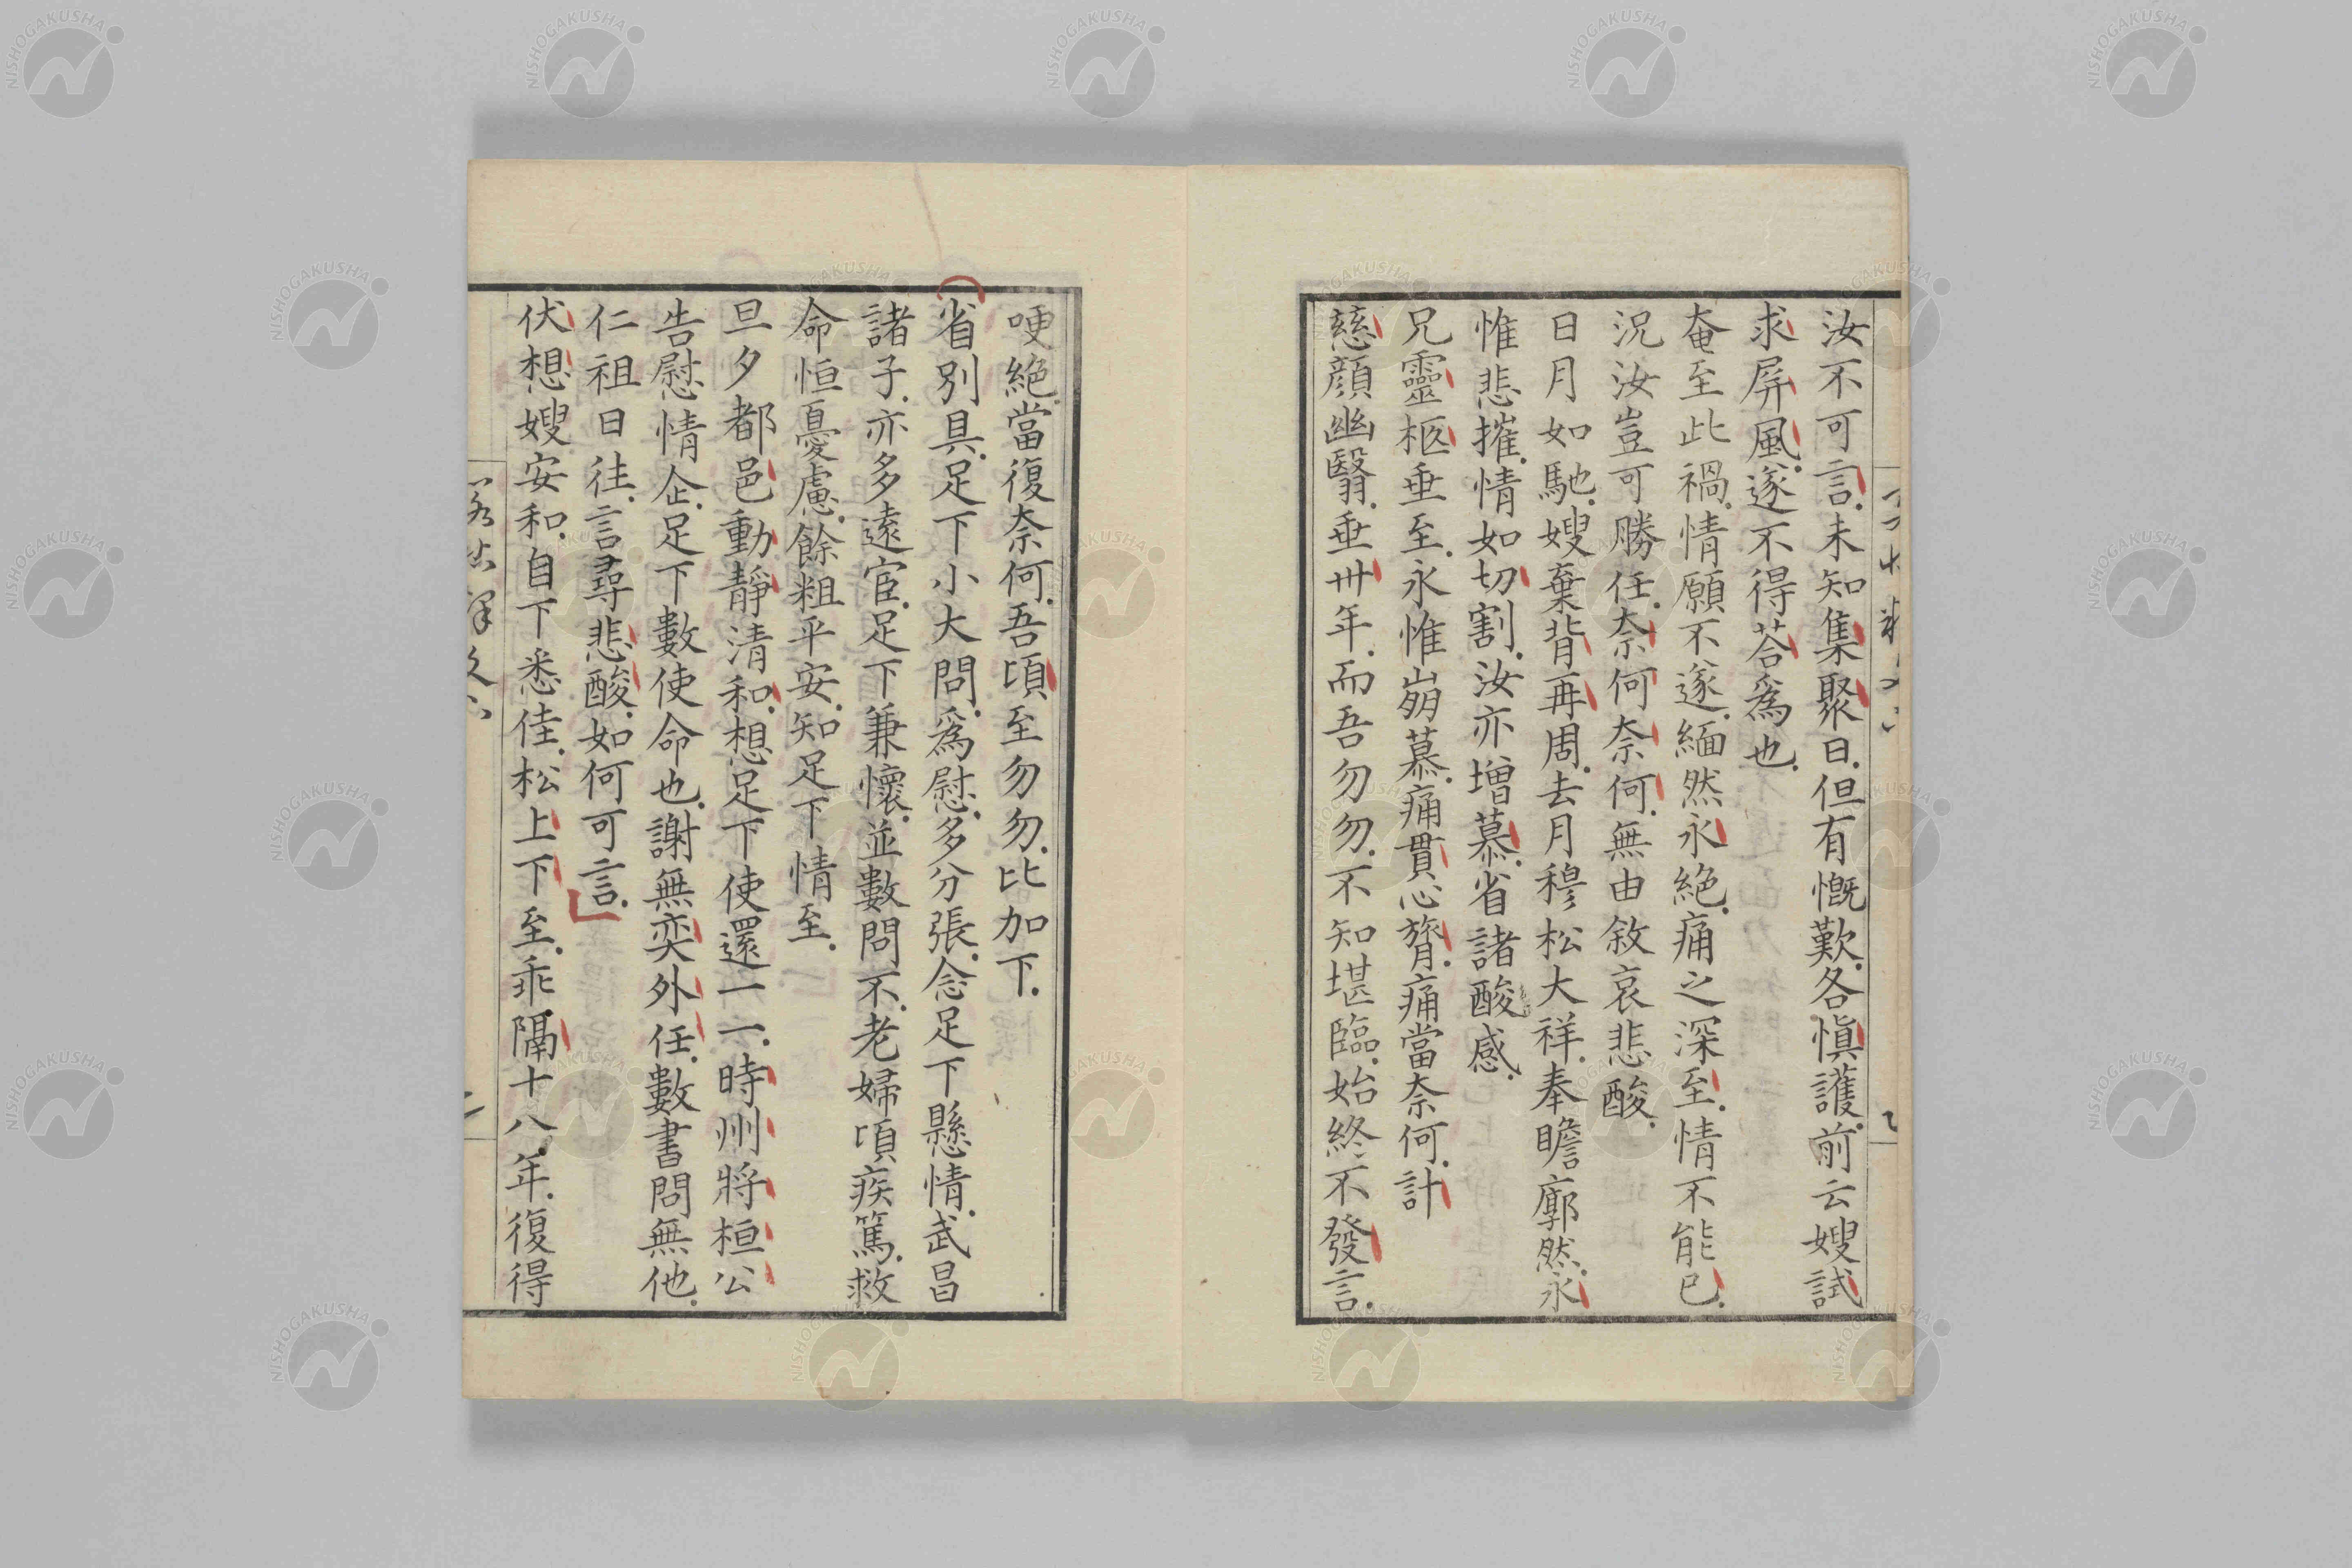 汝不可言.未知集聚日.但有慨歎.各慎護.前云嫂試
求屏風.遂不得荅爲也.
奄至此禍.情願不遂.緬然永絶.痛之深至.情不能已.
況汝豈可勝任.奈何奈何.無由敘哀悲酸.
日月如馳.嫂棄背再周.去月穆松大祥.奉瞻廓然.永
惟悲摧.情如切割.汝亦增慕.省諸酸感.
兄靈柩垂至.永惟崩慕.痛貫心膂.痛當奈何.計
慈顔幽翳.垂卅年.而吾勿勿.不知堪臨.始終不發言.
哽絶.當復奈何.吾頃至勿勿.比加下.
省別具.足下小大問.爲慰.多分張.念足下懸情.武昌
諸子.亦多遠宦.足下兼懷.並數問不.老婦頃疾篤.救
命恒憂慮.餘粗平安.知足下情至.
旦夕都邑動靜清和.想足下使還一一.時州將桓公
告慰情企.足下數使命也.謝無奕外任.數書問無他.
仁祖日往.言尋悲酸.如何可言.
伏想嫂安和.自下悉佳.松上下至.乖隔十八年.復得
NISHOGAKUSHA